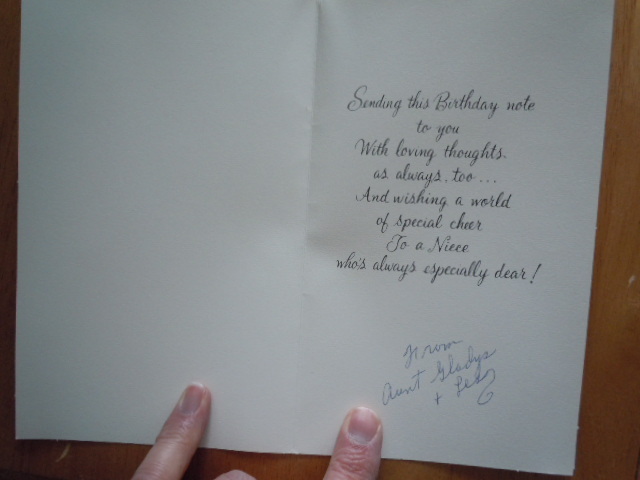 Sending this Birthday note
to you
With loving thoughts,
as always, too...
And wishing a world
of special cheer
To a Niece
who's always especially dear!
From
Aunt Gladys
+ Les